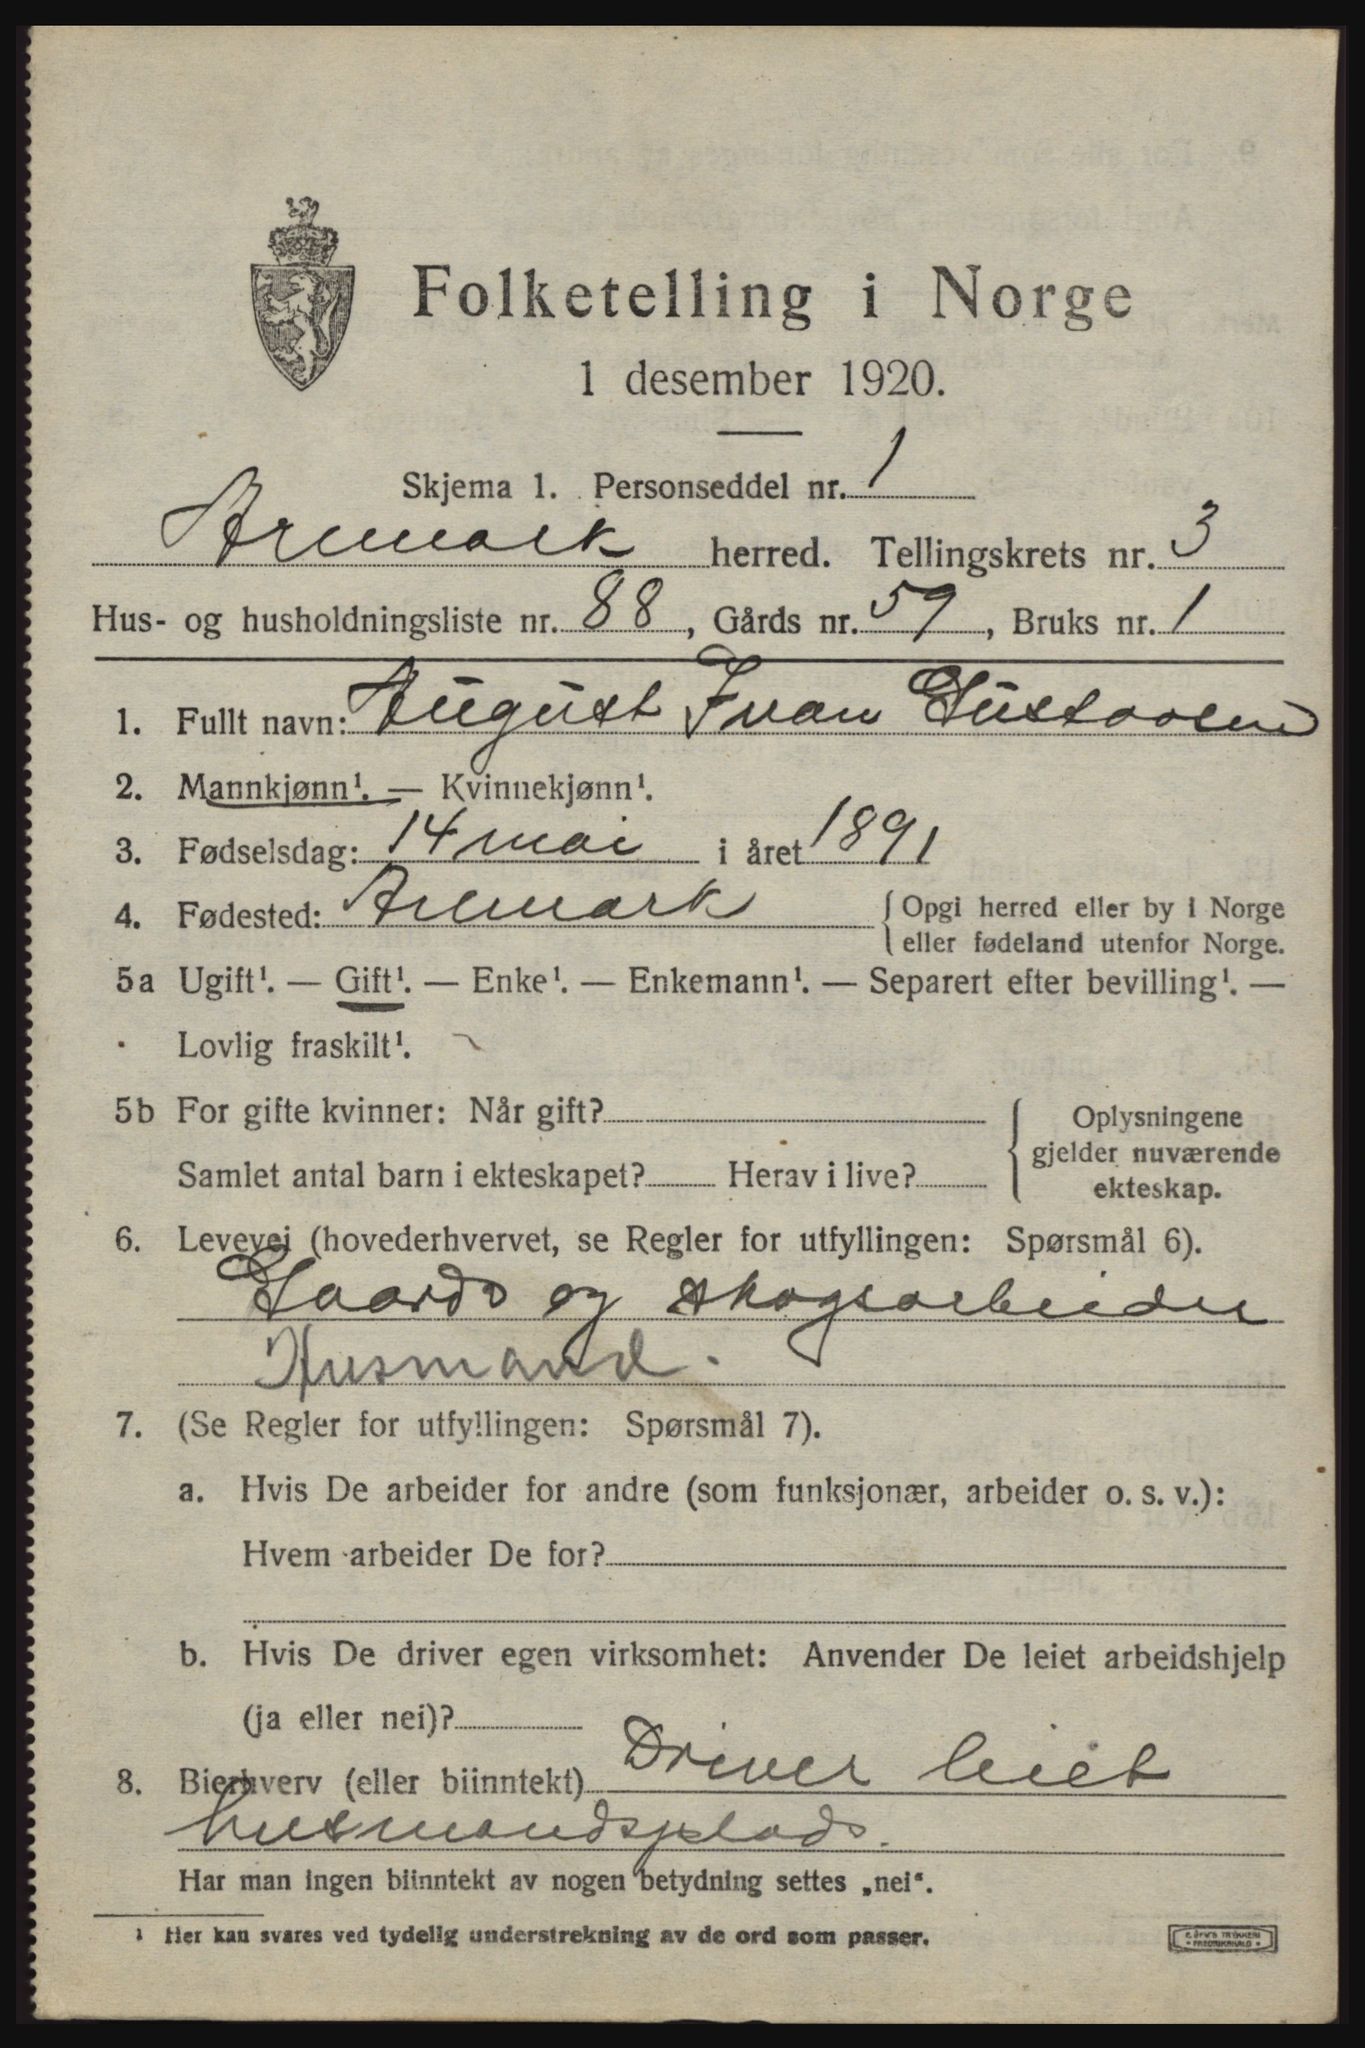 Folketelling i Norge
1 desember 1920.
Skjema 1. Personseddel nr. 1
Aremark herred. Tellingskrets nr. 3
Hus- og husholdningsliste nr. 88, Gårds nr. 59, Bruks nr. 1
1. Fullt navn: August Ivan Gustavsen
2. Mannkjønn¹. — Kvinnekjønn¹.
3. Fødselsdag: 14 mai i året 1891
4. Fødested: Aremark {Opgi herred eller by i Norge
eller fødeland utenfor Norge.
5a Ugift¹. — Gift¹. — Enke¹. — Enkemann¹. — Separert efter bevilling¹. —
Lovlig fraskilt¹.
5b For gifte kvinner: Når gift? { Oplysningene
gjelder nuværende
Samlet antal barn i ekteskapet? Herav i live? ekteskap.
6. Levevei (hovederhvervet, se Regler for utfyllingen: Spørsmål 6).
Gaards og skogsarbeider
Husmand.
7. (Se Regler for utfyllingen: Spørsmål 7).
a. Hvis De arbeider for andre (som funksjonær, arbeider o. s. v.):
Hvem arbeider De for?
b. Hvis De driver egen virksomhet: Anvender De leiet arbeidshjelp
(ja eller nei)?
8. Bierhverv (eller biinntekt) Driver leiet
husmandsplads.
Har man ingen biinntekt av nogen betydning settes „nei“.
¹ Her kan svares ved tydelig understrekning av de ord som passer.